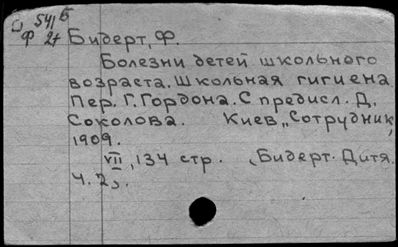 541 Б
Ф 27
Бидерт, Ф.
Болезни детей школьного
возраста. Школьная гигиена.
Пер. Г. Гордона. С предисл. Д.
Соколова. Киев, „Сотрудник",
1909.
VII, 134 стр. (Бидерт. Дитя.
Ч. 2).